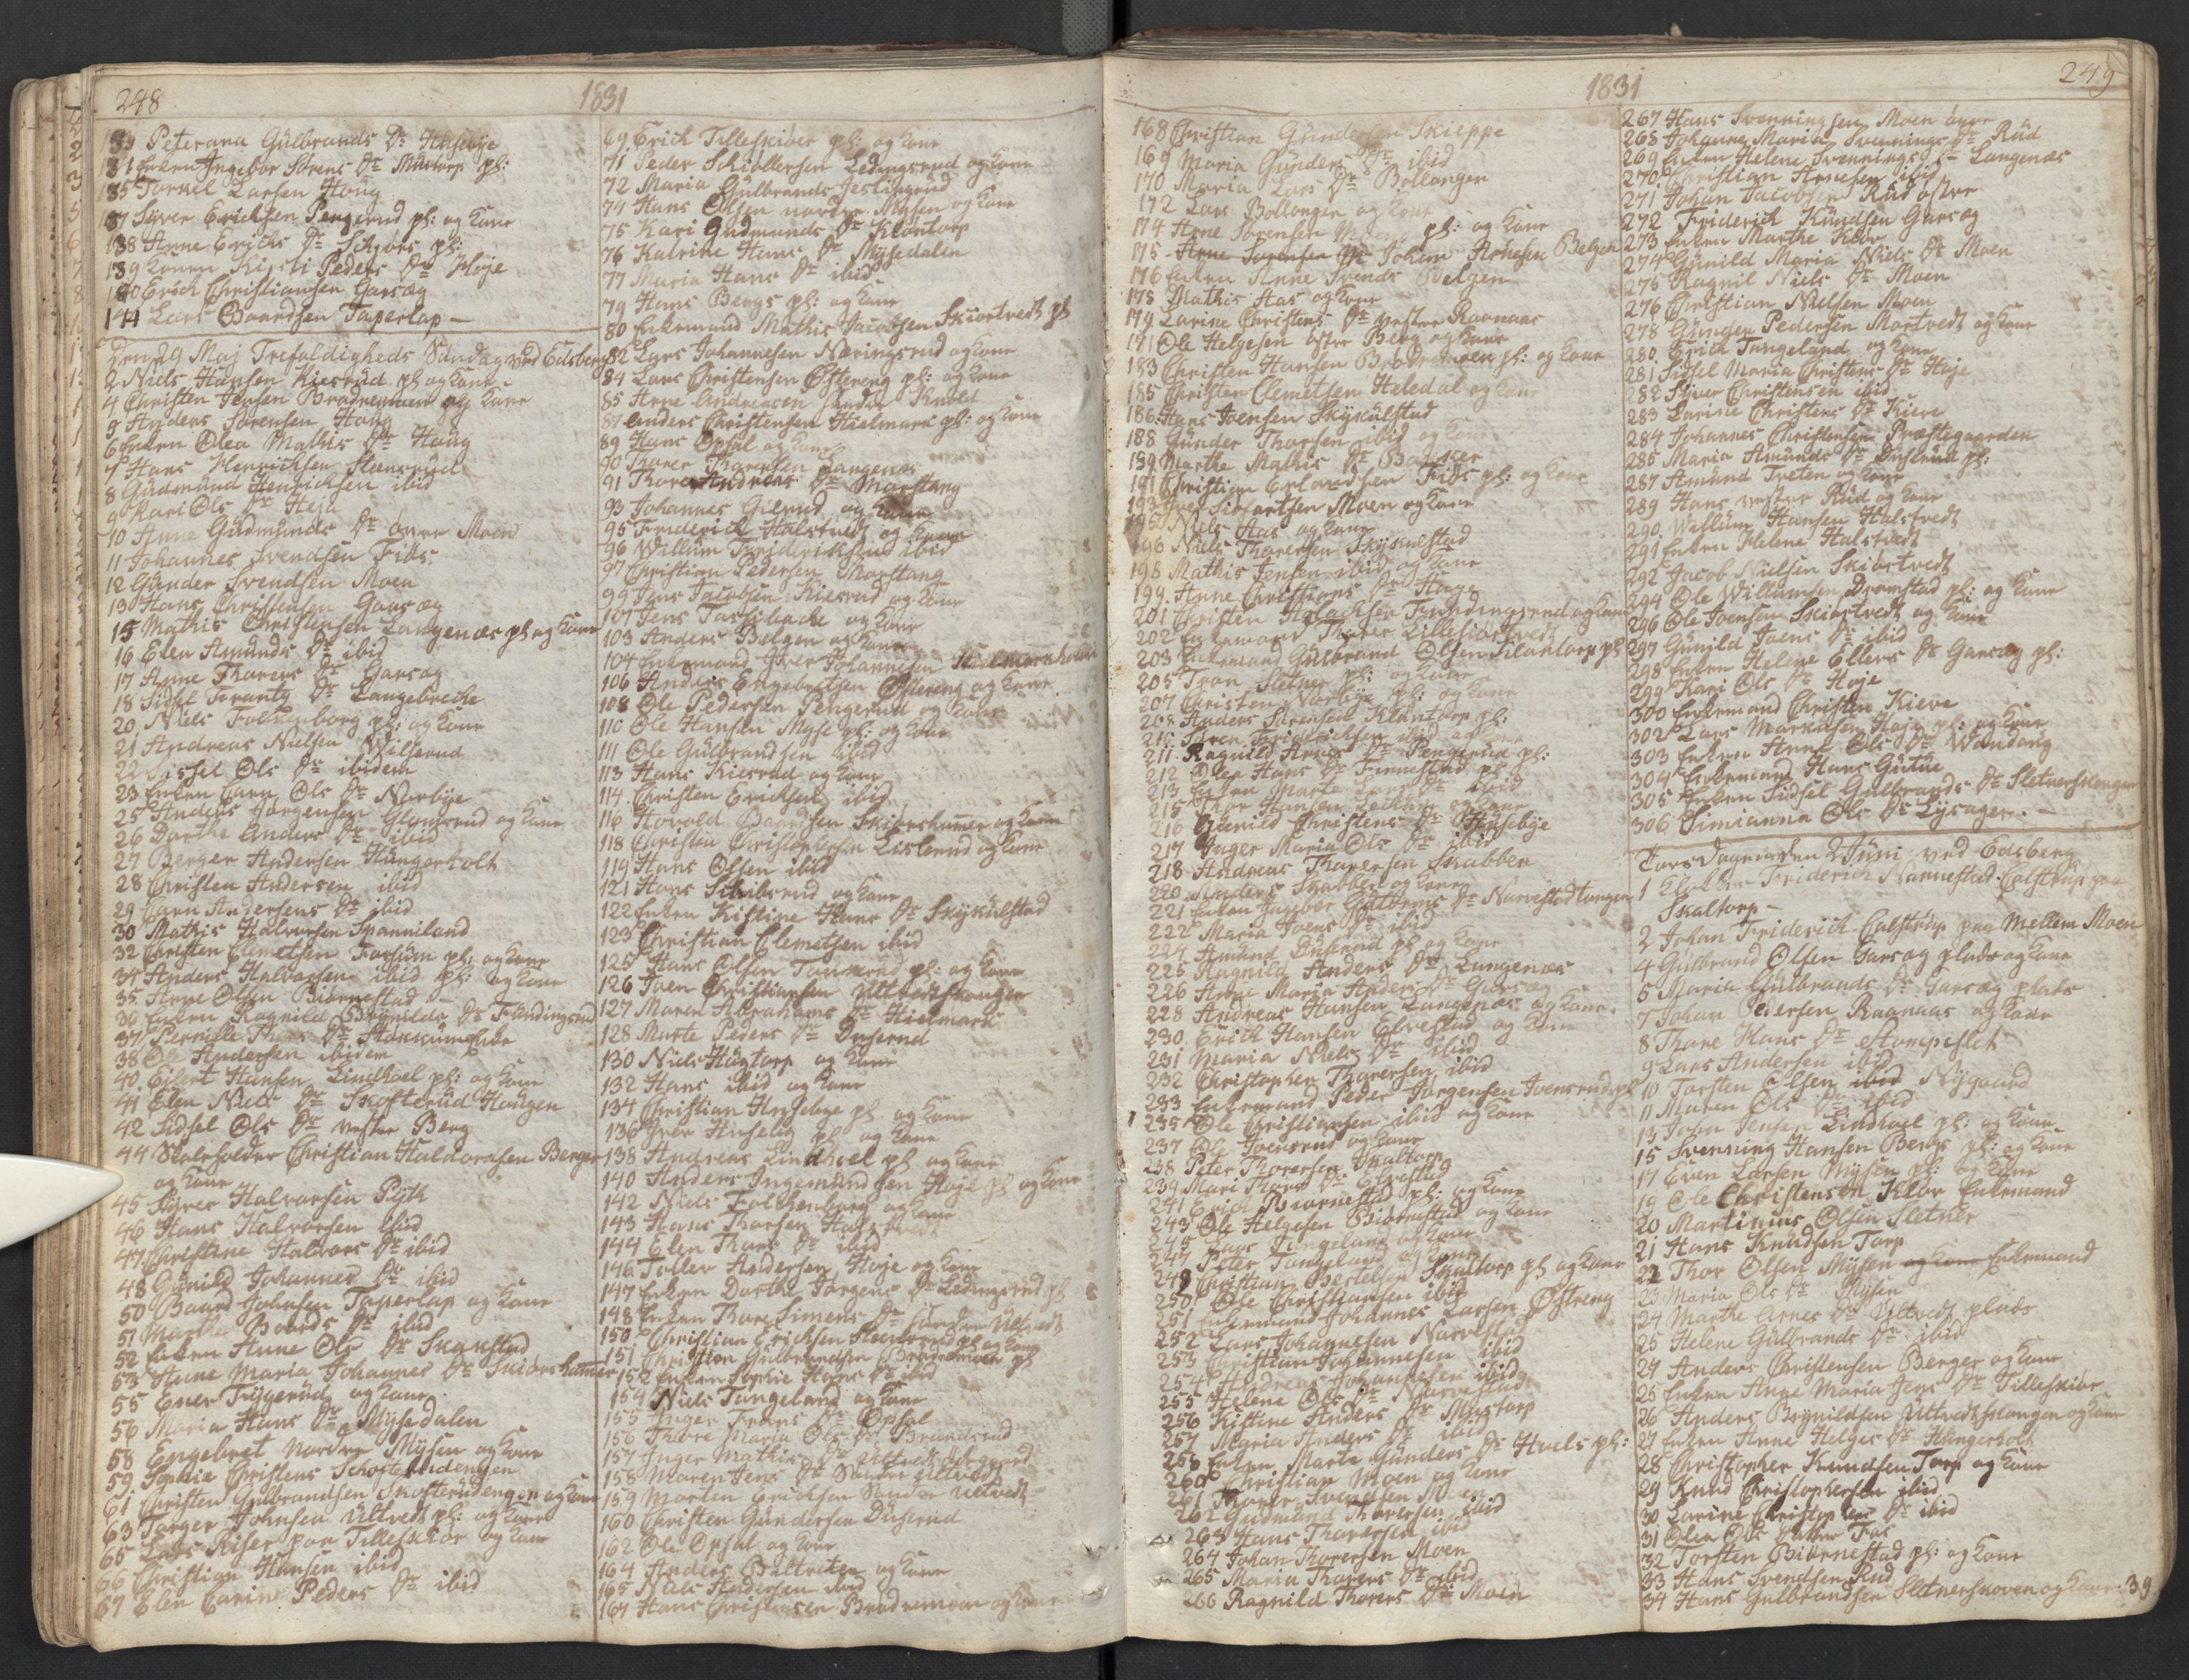 248
1831
33 Peterana Gulbrands Dr Huseby
34 Enken Ingebor Sørens Dr Mustorp pl:
35 Torkil Larsen Houg
37 Siver Ericksen Pengerud pl: og Kone
138 Anne Erichs Dr Schjøs pl:
139 Konen Kisti Peders Dr Høje
140 Erich Christiansen Garsæg
141 Lars Baardsen Taperlap
Den 29 Maj Trefoldigheds Søndag ved Edsberg
2 Niels Hansen Kiesrud pl og Kone
4 Christen Jensen Brødremoen og Kone
5 Anders Sørensen Houg
6 Enken Olea Mathis Dr Houg
7 Hans Henrichsen Steensrud
8 Gudmund Henrichsen ibid
9 Kari Ols Dr Heja
10 Anne Gudmunds Dr øvre Moen
11 Johannes Svendsen Fiøs
12 Gunder Svendsen Moen
13 Hans Christensen Garsæg
15 Mathis Christensen Langenæs pl og Kone
16 Elen Amunds Dr ibid
17 Anne Thorers Dr Garsæg
18 Sidsel Frants Dr Langebreke
20 Niels Folkenborg pl: og Kone
21 Andreas Nielsen Wilserud
22 Sissel Ols Dr ibidem
23 Enken Karn Ols Dr Norbye
25 Anders Jørgensen Glomsrud og Kone
26 Dorthe Anders Dr ibid
27 Berger Andersen Hungerholt
28 Christen Andersen ibid
29 Karn Andersens Dr ibid
30 Mathis Halvorsen Spanniland
32 Christen Clemetsen Fossum pl: og Kone
34 Anders Halvorsen ibid pl: og Kone
35 Arne Olsen Biørnestad
36 Enken Ragnild Brynilds Dr Fredingsrud
37 Pernille Dr
38 Ole Andersen ibidem
40 Ejlert Hansen Lindhoel pl: og Kone
41 Elen Niels Dr Skofterud Hougen
42 Sidsel Ols Dr vestre Berg
44 Skoleholder Christian Haldorsen Berger
og Kone
45 Siver Halvorsen Pyth
46 Hans Halvorsen ibid
47 Christine Halvors Dr ibid
48 Gunild Johannes Dr ibid
50 Baard Johnsen Taperlap og Kone
51 Marthe Baards Dr ibid
52 Enken Anne Ols Dr Skakstad
53 Anne Maria Johannes Dr Skiørshamer
55 Ener Frygerud og Kone
56 Maria Hans Dr Mysedalen
58 Engebret nordre Mysen og Kone
59 Sophie Christens Schofterudengen
61 Christen Gulbrandsen Skofterudengen og Kone
63 Torger Johnsen Ultvedt pl: og Kone
65 Lars Riser paa Tilleskiør og Kone
66 Christian Hansen ibid
67 Elen Carine Peders Dr ibid
69 Erich Tilleskiøer pl: og Kone
71 Peder Schiollersen Ledingsrud og Kone
72 Maria Gulbrands Jeslingrud
74 Hans Olsen nordre Mysen og Kone
75 Kari Gudmunds Dr Klontorp
76 Katrine Hans Dr Mysedalen
77 Maria Hans Dr ibid
79 Hans Bergs pl: og Kone
80 Enkemand Mathis Jacobsen Skiørtvedt pl
82 Lars Johannesen Næringsrud og Kone
84 Lars Christensen Østereng pl: og Kone
85 Arne Andreasen
87 Anders Christensen Hielmark pl: og Kone
89 Hans Opsal og Kone
90 Thorer Thorersen Langenæs
91 Thore Andreas Dr Morstang
93 Johannes Gilerud og Kone
95 Friderich Halstvedt og Kone
96 Willum Frideriksen ibid
97 Christian Pedersen Morstang
99 Jens Jacobsen Kiesrud og Kone
101 Jens Fossibache og Kone
103 Anders Belgen og Kone
104 Enkemand Iver Johannesen Hielmarkholm
106 Anders Engebretsen Østereng og Kone
108 Ole Pedersen Pengerud og Kone
110 Ole Hansen Myse pl: og Kone
111 Ole Gulbrandsen ibid
113 Hans Kiesrud og Kone
114 Christen Ericksen ibid
116 Hovald Baardsen Skiørshamer og Kone
118 Christen Christophersen Lislerud og Kone
119 Hans Olsen ibid
121 Hans Skribsrud og Kone
122 Enken Kistine Hans Dr Skykulstad
123 Christian Clemetsen ibid
125 Hans Olsen Tonnerud pl: og Kone
126 Joen Christiansen Ultvedtskougen
127 Maren Abrahams Dr Hielmark
128 Marte Peders Dr Duserud
130 Niels Hugtorp og Kone
132 Hans ibid og Kone
134 Christian Huseby pl og Kone
136 Iver Huseby pl og Kone
138 Andreas Lindhoel pl og Kone
140 Anders Ingemundsen Høje pl og Kone
142 Niels Folkenborg og Kone
143 Hans Thorsen Halstvedt
144 Elen Thors Dr ibid
146 Tollev Andersen Høje og Kone
147 Enken Dorthe Jørgens Dr Ledingsrud pl
148 Enken Thore Simens Dr søndre Ultvedt
150 Christian Ericksen Steensrud pl og Kone
151 Christian Gulbrandsen Brødremoen pl
152 Enken Sophie Hans Dr ibid
154 Niels Tangeland og Kone
155 Inger Frans Dr Opsal
156 Thore Maria Ols Dr Brandsrud
157 Inger Mathis Dr Ultvedtødegaard
158 Maren Jens Dr Søndre Ultvedt
159 Morten Ericksen Søndre Ultvedt
160 Christen Gundersen Duserud
162 Ole Opsal og Kone
164 Anders Baltviken og Kone
165 Niels Andersen ibid
167 Hans Christensen Brødremoen og Kone
249
1831
168 Christian Gundersen Skieppe
169 Maria Gunders Dr ibid
170 Maria Lars Dr Bollangen
172 Lars Bollongen og Kone
174 Arne Sørensen pl: og Kone
175 Arne Sørensen Dr Johan Arnesen Belgen
176 Enken Anne Svends Belgen
178 Mathis Aas og Kone
179 Larine Christens Dr vestre Raanaas
181 Ole Helgesen østre Berg og Kone
183 Christen Hansen Brødremoen pl: og Kone
185 Christen Clemetsen Heledal og Kone
186 Hans Joensen Skykulstad
188 Gunder Thorsen ibid og Kone
189 Marthe Mathis Dr
191 Christian Erlandsen Fiøs pl: og Kone
193 Iver Sivertsen Moen og Kone
195 Niels Aas og Kone
196 Niels Thorersen Skykulstad
198 Mathis Jensen ibid og Kone
199 Anne Christians Dr Høye
201 Christen Aslachsen Frødingsrud og Kone
202 Enkemand Thorer Lilleskiørtvedt
203 Enkemand Gulbrand Olsen Silantorp pl
205 Tron Sletner pl: og Kone
207 Christen Norbye pl: og Kone
208 Anders Sørensen Klontorp pl:
210 Søren Friderichsen ibid og Kone
211 Ragnild Arnes Dr Pengerud pl:
212 Olea Hans Dr Finnestad pl
213 Enken Marte Lars Dr ibid
215 Thor Hansen og Kone
216 Gunild Christens Dr Huseby
217 Inger Maria Ols Dr ibid
218 Andreas Thorersen Skabbe
220 Anders Skabbe og Kone
221 Enken Ingebor Gulbrans Dr Narvestadtangen
222 Maria Joens Dr ibid
224 Amund Duserud pl og Kone
225 Ragnild Anders Dr Langenæs
226 Anne Maria Anders Dr Garsæg
228 Andreas Hansen Langenæs og Kone
230 Erich Hansen Elvestad og Kone
231 Maria Niels Dr ibid
232 Christopher Thorersen ibid
233 Enkemand Peder Jørgensen Joensrud pl
235 Ole Christiansen ibid og Kone
237 Ole Joensrud og Kone
238 Peter Thorersen Skaltorp
239 Mari Thors Dr Elvestad
241 Erich Biørnestad pl: og Kone
243 Ole Helgesen Biørnestad og Kone
245 Lars Tangeland og Kone
247 Peter Tangeland og Kone
249 Christian Bertelsen Skaltorp pl og Kone
250 Ole Christiansen ibid
251 Enkemand Johannes Larsen Østreng
252 Lars Johannesen Narvestad
253 Christian Johannesen ibid
254 Andreas Johannesen ibid
255 Helene Ols Dr Narvestad
256 Kistine Anders Dr Mustorp
257 Maria Anders Dr ibid
258 Enken Marte Gunders Dr Hoels pl:
260 Christian Moen og Kone
261 Thorer Svendsen Moen
262 Gudmund Thorersen ibid
263 Hans Thorersen ibid
264 Johan Thorersen Moen
265 Maria Thorers Dr ibid
266 Ragnild Thorers Dr Moen
267 Hans Svenningsen Moen øvre
268 Johanne Marie Svennings Dr Rud
269 Enken Helene Svennings Dr Langenæs
270 Christian Arnesen ibid
271 Johan Jacobsen Rud østre
272 Friderich Knudsen Garsæg
273 Enken Marthe Kløv
274 Gunild Maria Niels Dr Moen
275 Ragnil Niels Dr Moen
276 Christian Nielsen Moen
278 Gunder Pedersen Mortvedt og Kone
280 Erich Tangeland og Kone
281 Sidsel Maria Christens Dr Høje
282 Siver Christensen ibid
283 Larine Christens Dr Kieve
284 Johannes Christensen Præstegaarden
285 Maria Amunds Dr Duserud pl:
287 Amund Treten og Kone
289 Hans vestre Rud og Kone
290 Willum Hansen Halstvedt
291 Enken Helene Halstvedt
292 Jacob Nielsen Skiørtvedt
294 Ole Willumsen Dramstad pl: og Kone
296 Ole Joensen Skiørtvedt og Kone
297 Gunild Joens Dr ibid
298 Enken Helene Ellevs Dr Garsæg pl:
299 Kari Ols Dr Høje
300 Enkemand Christen Kieve
302 Lars Markusen Høje pl: og Kone
303 Enken Anne Ols Dr Wandaug
304 Enkemand Hans Gutue
305 Enken Sidsel Gulbrands Dr Sletnerskougen
306 Simianna Ols Dr Lysager.
Torsdagen den 2 Juni ved Edsberg
1 Klokker Friderich Nannestad Calstrup paa
Skaltorp
2 Johan Friderich Calstrup paa Mellem Moen
4 Gulbrand Olsen Garsæg plads og Kone
5 Maria Gulbrands Dr Garsæg plads
7 Johan Pedersen Raanaas og Kone
8 Thore Hans Dr Stompeslet
9 Lars Andersen ibid
10 Torsten Olsen ibid Nygaard
11 Maren Ols Dr ibid
13 John Jensen Lindhoel pl: og Kone
15 Svenning Hansen Bergs pl: og Kone
17 Even Larsen Mysen pl: og Kone
19 Ole Christensen Kløv Enkemand
20 Martinius Olsen Sletner
21 Hans Knudsen Torp
22 Thor Olsen Mysen og Kone Enkemand
23 Maria Ols Dr Mysen
24 Marthe Arnes Dr Ultvedt plads
25 Helene Gulbrands Dr ibid
24 Anders Christensen Berger og Kone
25 Enken Anne Maria Jens Dr Tilleskiør
26 Anders Brynildsen Ultvedtskougen og Kone
27 Enken Anne Helges Dr Hungerholt
28 Christopher Knudsen Torp og Kone
29 Knud Christophersen ibid
30 Larine Christophers Dr ibid
31 Olea Ols Dr Fos
32 Torsten Biørnestad pl: og Kone
33 Hans Svendsen Rud
34 Hans Gulbrandsen Sletnerskoven og Kone. 39